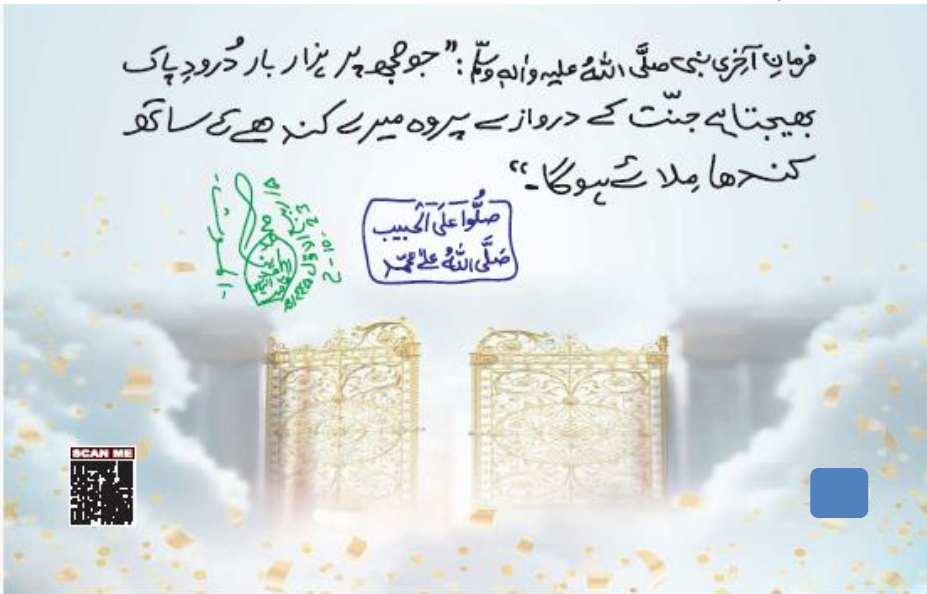 فرمانِ آخری نبی صلَّی اللہُ علیہ واٰلہٖ وسلَّم : ”جو مجھ پر ہزار بار دُرودِ پاک
بھیجتا ہے جنّت کے دروازے پر وہ میرے کندھے کے ساتھ
کندھا مِلائے ہوگا۔“
صَلُّوا عَلَی الْحَبِیب
صَلَّی اللہُ عَلٰی مُحَمَّد
SCAN ME